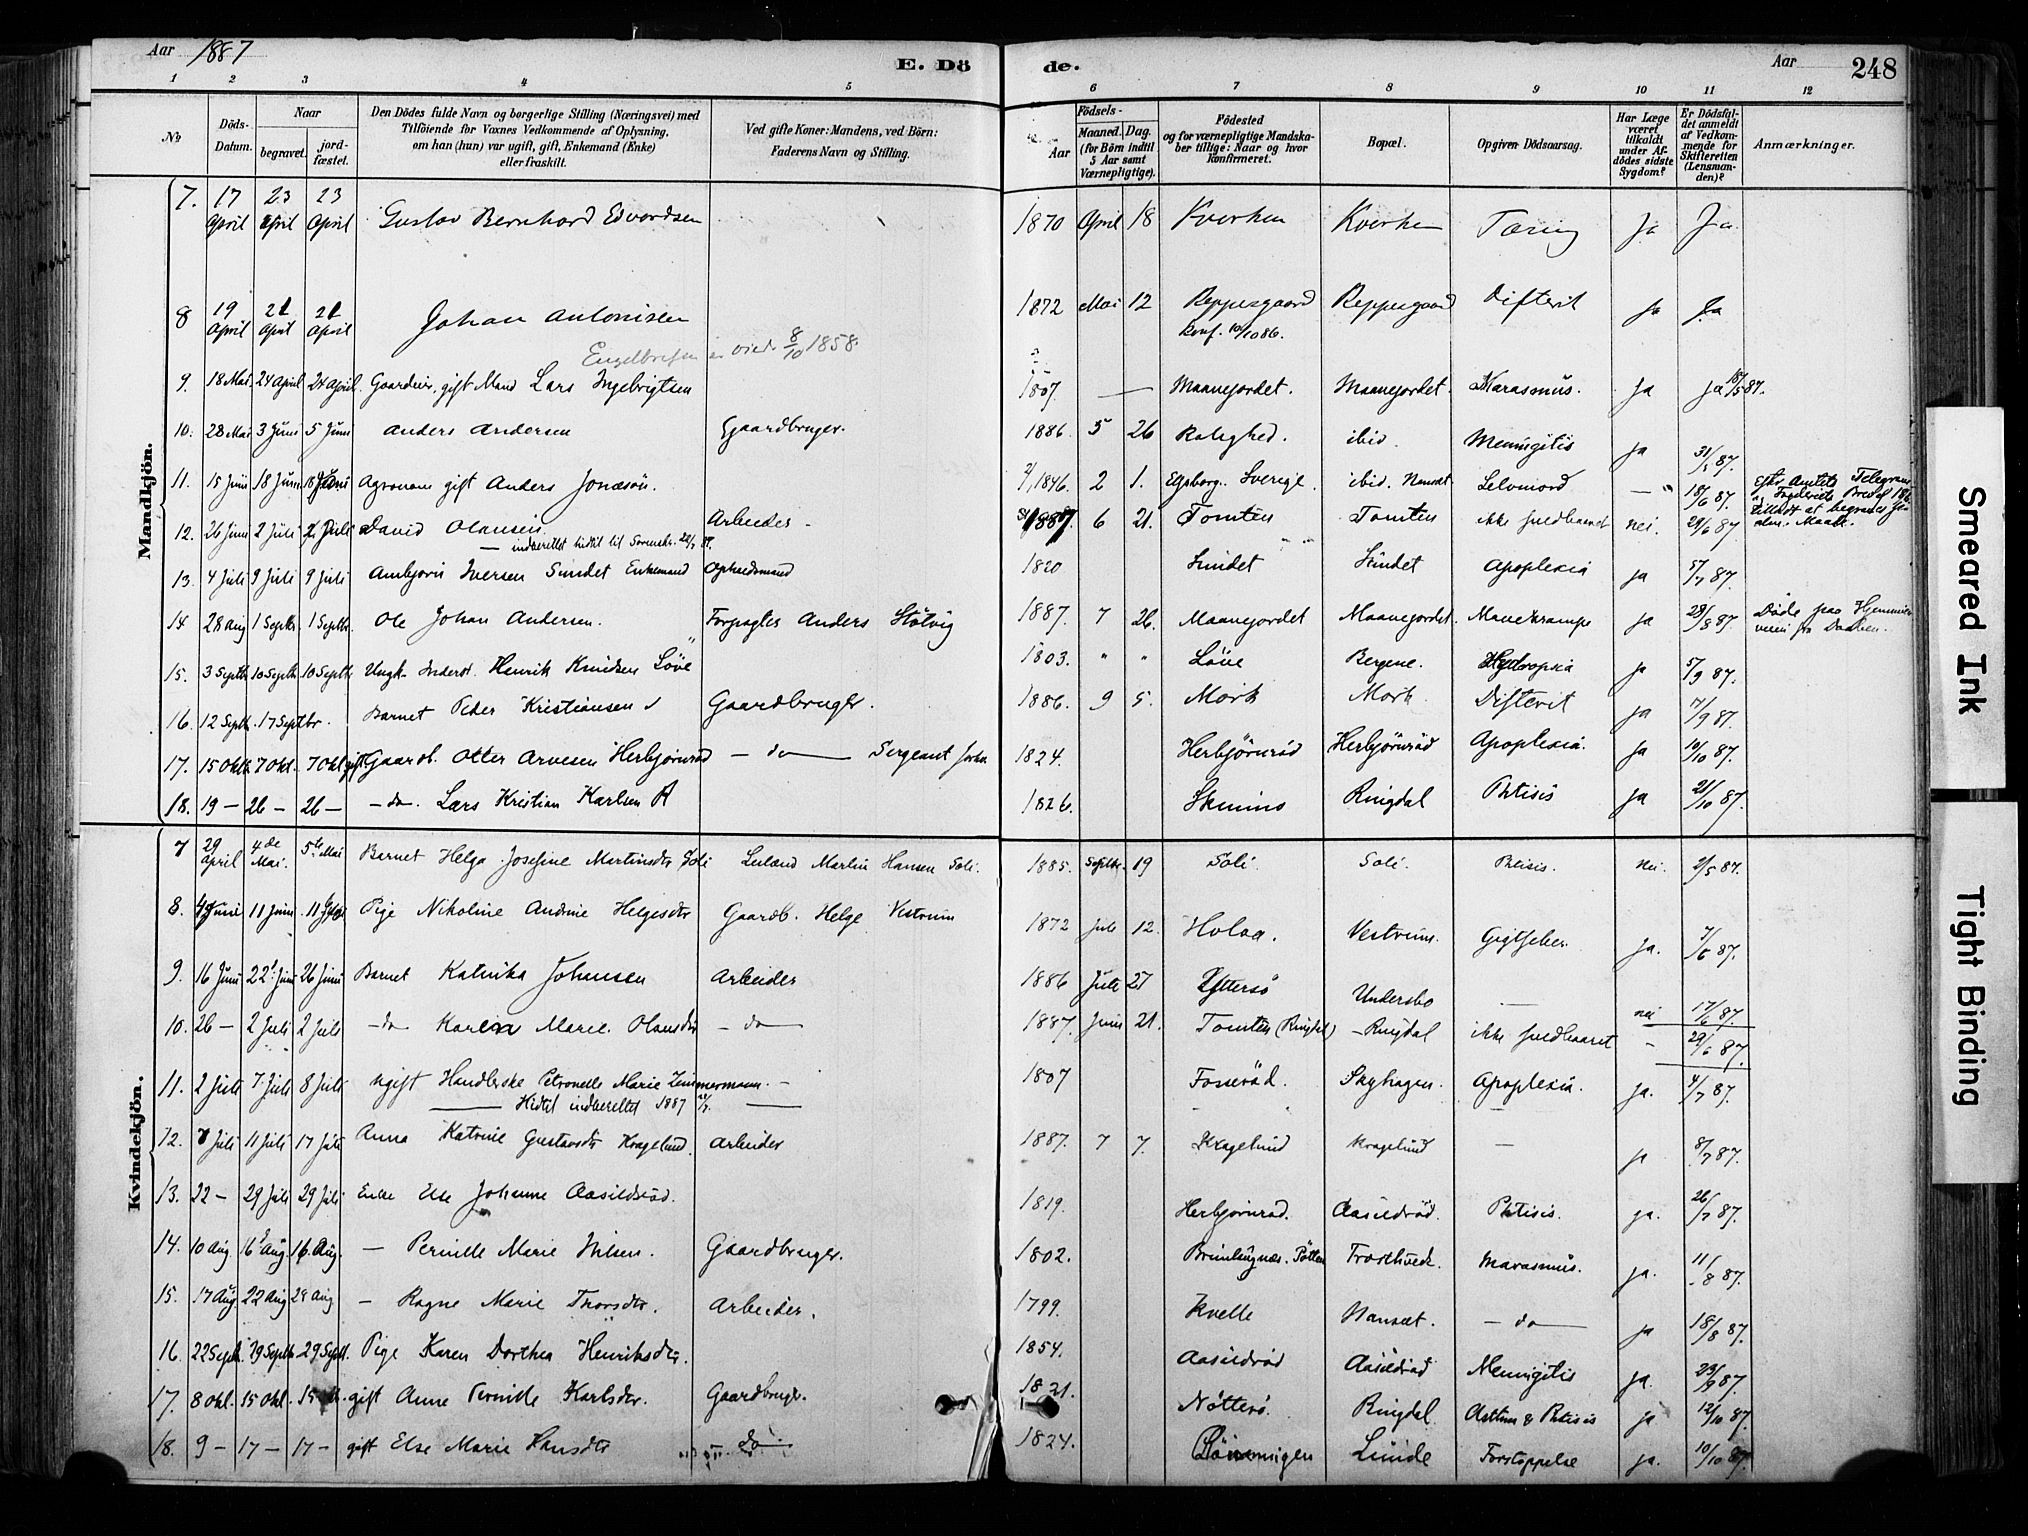 Aar 1887
E. Dö
de.
Aar
248
1 2 3 4 5 6 7 8 9 10 11 12
No
Döds-Datum.
Naar
begravet.
jordfæstet.
Den Dödes fulde Navn og borgerlige Stilling (Næringsvei) med
Tilföiende for Voxnes Vedkommende af Oplysning,
om han (hun) var ugift, gift, Enkemand (Enke)
eller fraskilt.
Ved gifte Koner: Mandens, ved Börn:
Faderens Navn og Stilling.
Födsels-
Aar
Maaned. Dag.
(for Börn indtil
5 Aar samt
Værnepligtige).
Födested
og for værnepligtige Mandska-
ber tillige: Naar og hvor
Konfirmeret.
Bopæl.
Opgiven Dödsaarsag.
Har Læge
været
tilkaldt
under Af-
dödes sidste
Sygdom?
Er Dödsfal-
det anmeldt
af Vedkom-
mende for
Skifteretten
(Lensman-
den)?
Anmærkninger.
Mandkjön.
7. 17 April 23 April 23 April Gustav Bernhard Edvardsen 1870 April 18 Tæring Ja Ja
8 19 April 21 April 21 April Johan Antonisen 1872 Mai 12 Reppesgaard Reppesgaard Difterit Ja Ja
Konf. 10/10 86.
viede 8/10 1858.
9. 18 Mai 24 April 24 April gift Mand Lars Ingebrigtsen 1807. — Maanejordet. Maanejordet. Marasmus. Ja Ja 18/5 87.
10. 28 Mai 3 Juni 5 Juni Anders Andersen Gaardbruger. 1886. 5 26 Rolighed. ibid. Meningitis ja 31/5 87.
11. 15 Juni 18 Juni 18 Juni Agronom gift Anders Jonasön. 1846. 2 1. Sverige ibid. Nansæt Selvmord — 18/6 87.
12. 26 Juni 2 Juli 2 Juli David Olausen Arbeider 1887. 6 21. Tomten Tomten ikke nei. 29/6 87
13. 4 Juli 9 Juli 9 Juli Iversen Sundet Enkemand 1820 Sundet Sundet Apoplexia ja 5/7 87.
14 28 Aug 1 Septbr. 1 Septbr. Ole Johan Andersen. Forpagter Anders Stölvig 1887. 7 26. Maanejordet Maanejordet. Mavekrampe ja 29/8 87. Döde paa
15. 3 Septbr 10 Septbr 10 Septbr Henrik Knudsen Löve 1803. " " Löve Bergene. Hydropsia ja 5/9 87.
16. 12 Septbr. 17 Septbr. Barnet Peder Kristiansen Gaardbruger. 1886. 9 5. Mork Mork Difterit ja 87.
17. 15 Oktb 7 Okt. 7 Okt gift Gaardb. Otter Arvesen Herbjörnröd — do — Sergeant 1824. Herbjörnröd Herbjörnröd Apoplexia. ja 19/10 87.
18. 19 — 26 — 26 — — do. Lars Kristian Karlsen 1826. Ringdal Phtisis ja 21/10 87.
Kvindekjön.
7 29 April 4de Mai. 5te Mai Barnet Helga Josefine Martinsdtr Soli Martin Hansen Soli. 1885. Septbr. 19 Soli Soli. Phtisis. nei. 2/5 87.
8. Juni 11 Juni 11 Pige Nikoline Andrine Helgesdtr Gaardb. Helge Vestrum 1872 Juli 12. Holaa. Vestrum. Gigtfeber. ja. 7/6 87.
9. 16 Juni 22 Juni 26 Juni Barnet Katrika Johnsen Arbeider 1886 Juli 27 Yttersö Undersbo — nei 17/6 87.
10. 26 — 2 Juli 2 Juli — do Karen Marie Olausdtr — do — 1887. Juni 21. Tomten (Ringdal) — Ringdal ikke — 29/6 87.
11. 2 Juli 7. Juli 8 Juli ugift Handlerske Petronelle Marie Zimmermann. — 1807 Fosseröd. Skyhagen. Apoplexia. ja. 4/7 87.
Hidtil indberettet 1887
12. 7 Juli 11 Juli 17 Juli Anna Katrine Gustavsdtr Kragelund. Arbeider 1887. 7 7. Kragelund Kragelund — ja 8/7 87.
13. 22 — 29 Juli 29 Juli Enke Else Johanne Aasildröd. 1819. Herbjörnröd. Aasildröd. Phtisis. ja. 26/7 87.
14. 10 Aug. 16 Aug. 16. Aug. — Pernille Marie Nilsen. Gaardbruger. 1802. Marasmus. ja. 11/8 87.
15. 17 Aug 22 Aug 22 Aug — Ragne Marie Thorsdtr. Arbeider. 1799. Kvelle Nansæt. — do — ja 18/8 87.
16. 22 Septb. 29 Septb 29 Septb. Pige Karen Dorthea Henriksdtr. 1854. Aasildröd Aasildröd Meningitis ja. 23/9 87.
17. 8 Okt. 15 Okt. 15 Okt. gift Anne Pernille Karlsdtr. Gaardbruger. 1821. Nötterö. Ringdal. Asthma & Phtisis ja 12/10 87.
18. 9 — 17 — 17 — gift Else Marie Hansdtr do 1824. Lunde Forstoppelse ja. 10/10 87.
Smeared Ink
Tight Binding